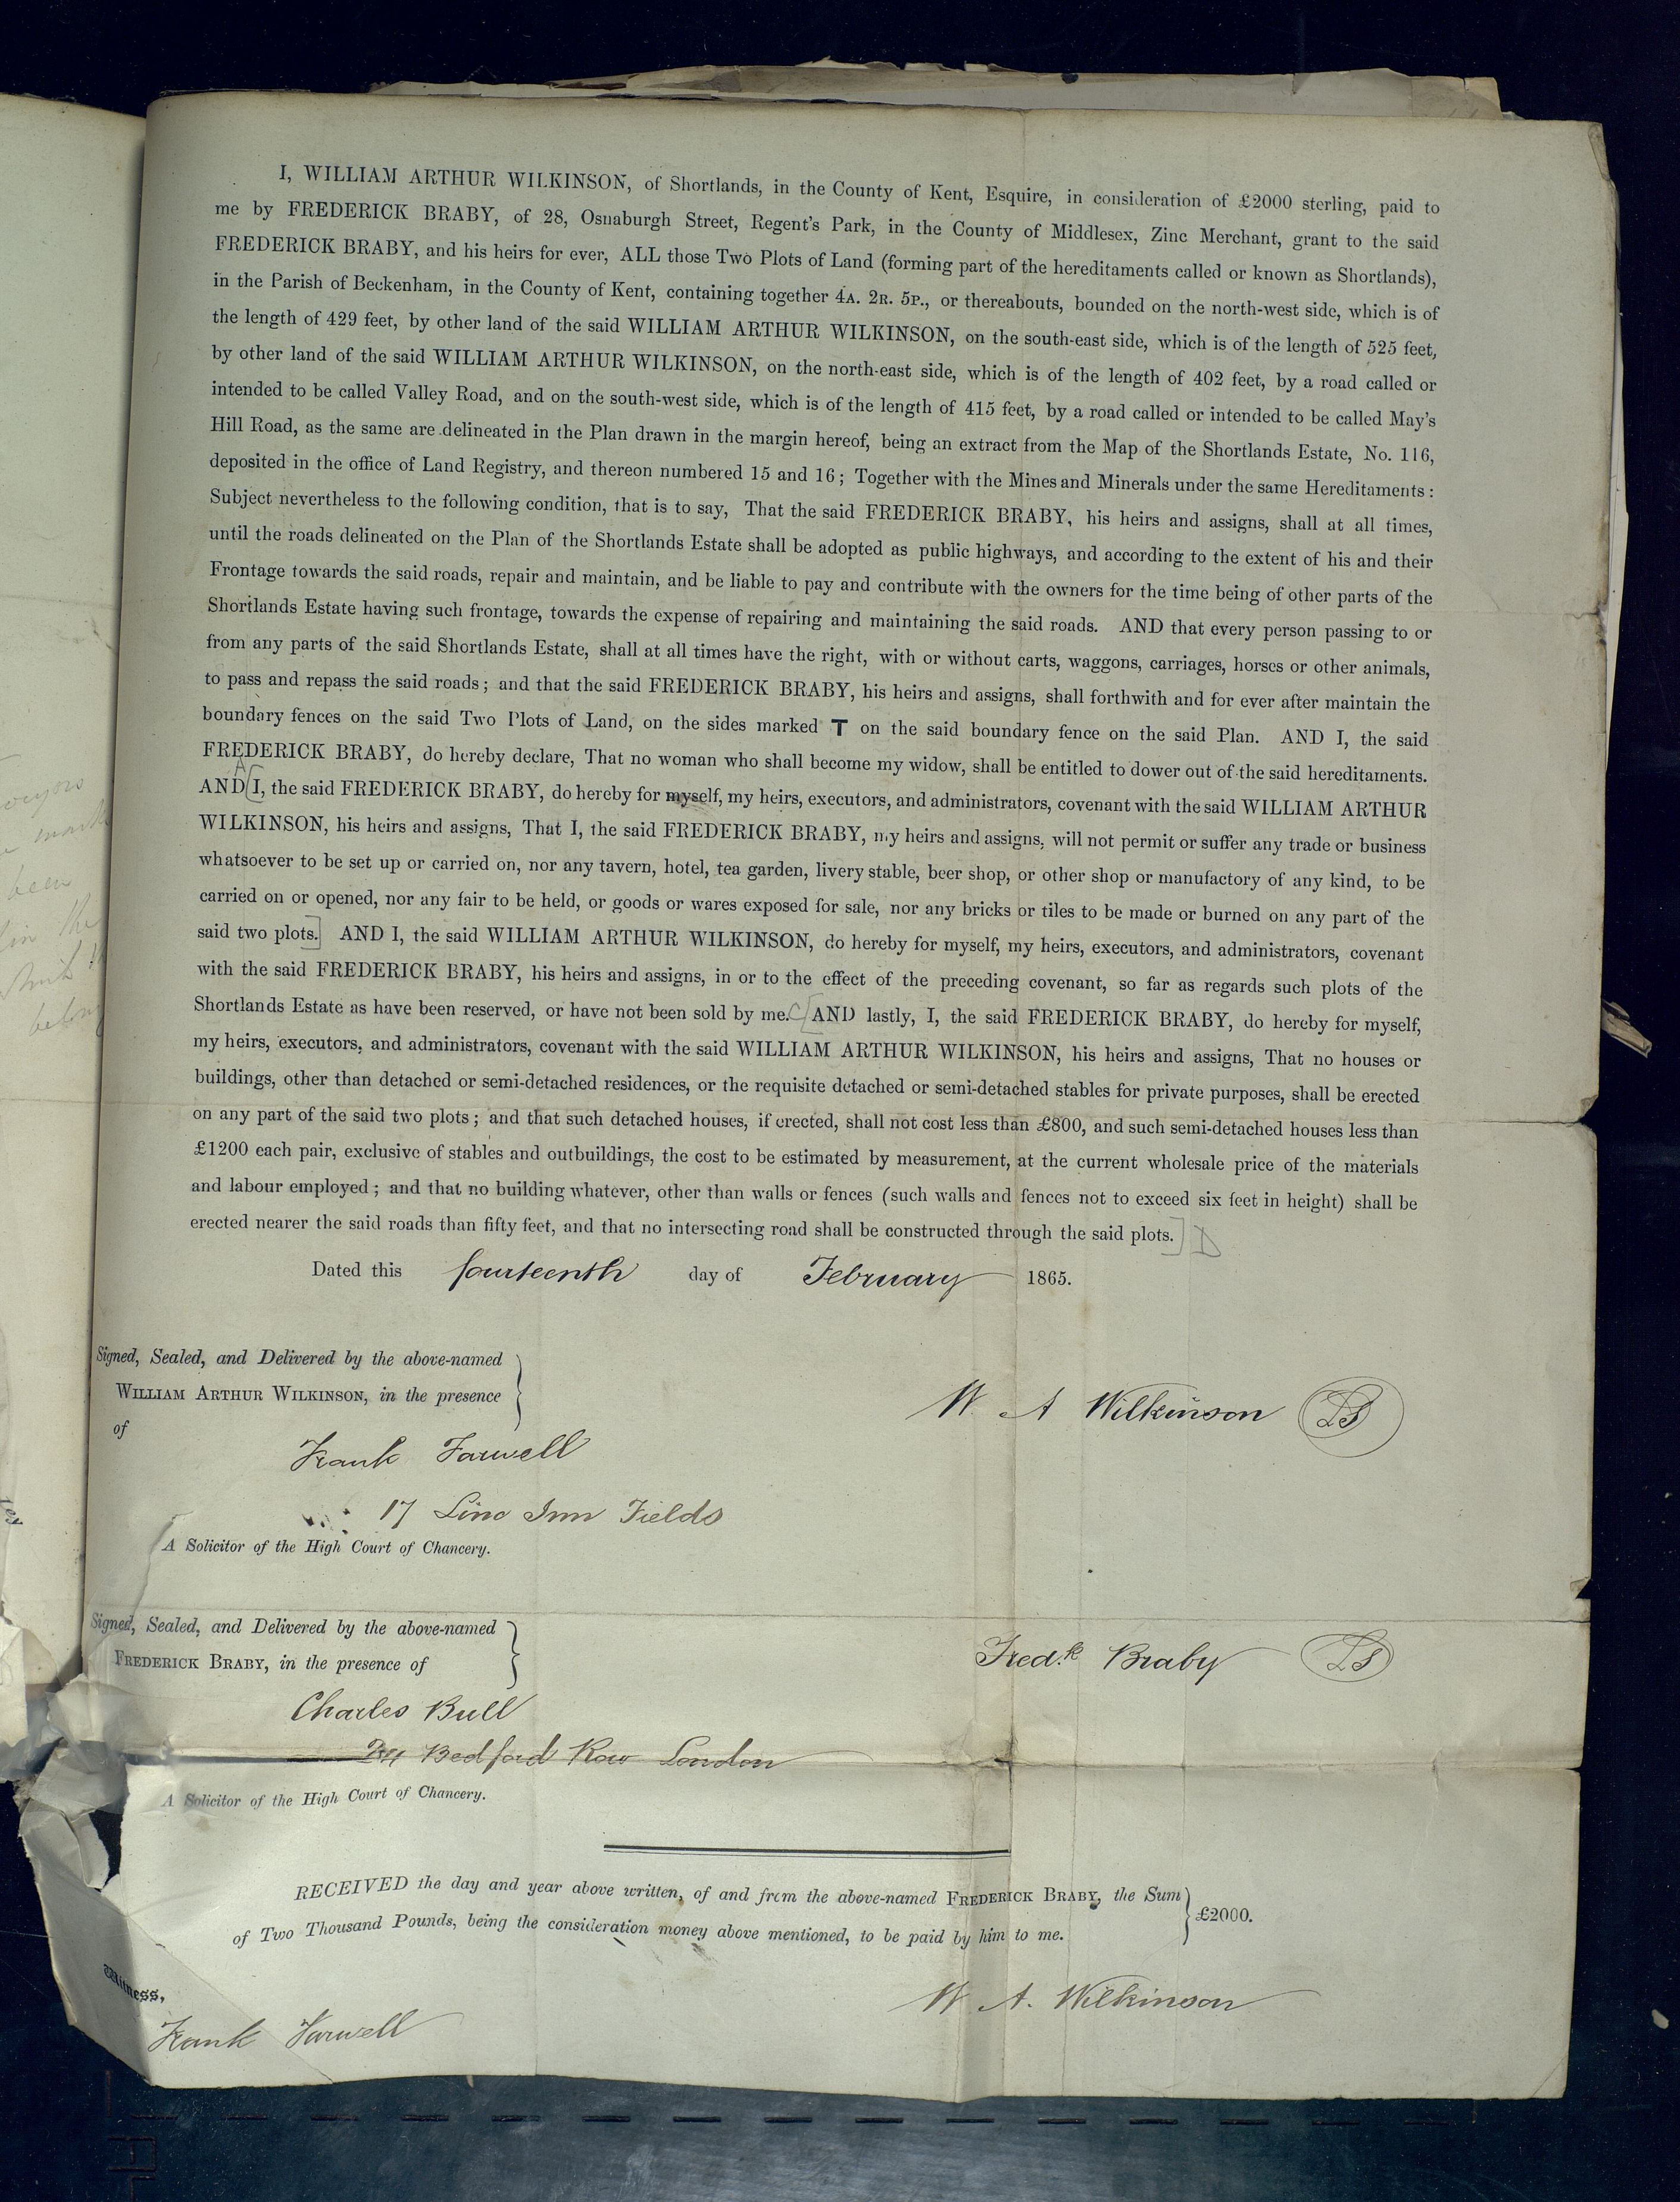 I, WILLIAM ARTHUR WILKINSON, of Shortlands, in the County of Kent, Esquire, in consideration of £2000 sterling, paid to
me by FREDERICK BRABY, of 28, Osnaburgh Street, Regent's Park, in the County of Middlesex, Zinc Merchant, grant to the said
FREDERICK BRABY, and his heirs for ever, ALL those Two Plots of Land (forming part of the hereditaments called or known as Shortlands),
in the Parish of Beckenham, in the County of Kent, containing together 4A. 2R. 5P., or thereabouts, bounded on the north-west side, which is of
the length of 429 feet, by other land of the said WILLIAM ARTHUR WILKINSON, on the south-east side, which is of the length of 525 feet,
by other land of the said WILLIAM ARTHUR WILKINSON, on the north-east side, which is of the length of 402 feet, by a road called or
intended to be called Valley Road, and on the south-west side, which is of the length of 415 feet, by a road called or intended to be called May's
Hill Road, as the same are delineated in the Plan drawn in the margin hereof, being an extract from the Map of the Shortlands Estate, No. 116,
deposited in the office of Land Registry, and thereon numbered 15 and 16; Together with the Mines and Minerals under the same Hereditaments:
Subject nevertheless to the following condition, that is to say, That the said FREDERICK BRABY, his heirs and assigns, shall at all times,
until the roads delineated on the Plan of the Shortlands Estate shall be adopted as public highways, and according to the extent of his and their
Frontage towards the said roads, repair and maintain, and be liable to pay and contribute with the owners for the time being of other parts of the
Shortlands Estate having such frontage, towards the expense of repairing and maintaining the said roads. AND that every person passing to or
from any parts of the said Shortlands Estate, shall at all times have the right, with or without carts, waggons, carriages, horses or other animals,
to pass and repass the said roads; and that the said FREDERICK BRABY, his heirs and assigns, shall forthwith and for ever after maintain the
boundary fences on the said Two Plots of Land, on the sides marked T on the said boundary fence on the said Plan. AND I, the said
FREDERICK BRABY, do hereby declare, That no woman who shall become my widow, shall be entitled to dower out of the said hereditaments.
A
AND [I, the said FREDERICK BRABY, do hereby for myself, my heirs, executors, and administrators, covenant with the said WILLIAM ARTHUR
WILKINSON, his heirs and assigns, That I, the said FREDERICK BRABY, my heirs and assigns, will not permit or suffer any trade or business
whatsoever to be set up or carried on, nor any tavern, hotel, tea garden, livery stable, beer shop, or other shop or manufactory of any kind, to be
carried on or opened, nor any fair to be held, or goods or wares exposed for sale, nor any bricks or tiles to be made or burned on any part of the
said two plots.] AND I, the said WILLIAM ARTHUR WILKINSON, do hereby for myself, my heirs, executors, and administrators, covenant
with the said FREDERICK BRABY, his heirs and assigns, in or to the effect of the preceding covenant, so far as regards such plots of the
Shortlands Estate as have been reserved, or have not been sold by me. C [AND lastly, I, the said FREDERICK BRABY, do hereby for myself,
my heirs, executors, and administrators, covenant with the said WILLIAM ARTHUR WILKINSON, his heirs and assigns, That no houses or
buildings, other than detached or semi-detached residences, or the requisite detached or semi-detached stables for private purposes, shall be erected
on any part of the said two plots; and that such detached houses, if erected, shall not cost less than £800, and such semi-detached houses less than
£1200 each pair, exclusive of stables and outbuildings, the cost to be estimated by measurement, at the current wholesale price of the materials
and labour employed; and that no building whatever, other than walls or fences (such walls and fences not to exceed six feet in height) shall be
erected nearer the said roads than fifty feet, and that no intersecting road shall be constructed through the said plots.] D
Dated this fourteenth day of February 1865.
Signed, Sealed, and Delivered by the above-named
WILLIAM ARTHUR WILKINSON, in the presence
of
W. A Wilkinson LS
Frank Farwell
17 Linc Inn Fields
A Solicitor of the High Court of Chancery.
Signed, Sealed, and Delivered by the above-named
FREDERICK BRABY, in the presence of
Fredk Braby LS
Charles Bull
Bedford Row London
A Solicitor of the High Court of Chancery.
RECEIVED the day and year above written, of and from the above-named FREDERICK BRABY, the Sum
of Two Thousand Pounds, being the consideration money above mentioned, to be paid by him to me.
£2000.
W. A. Wilkinson
Witness,
Frank Farwell
been
in the
belong